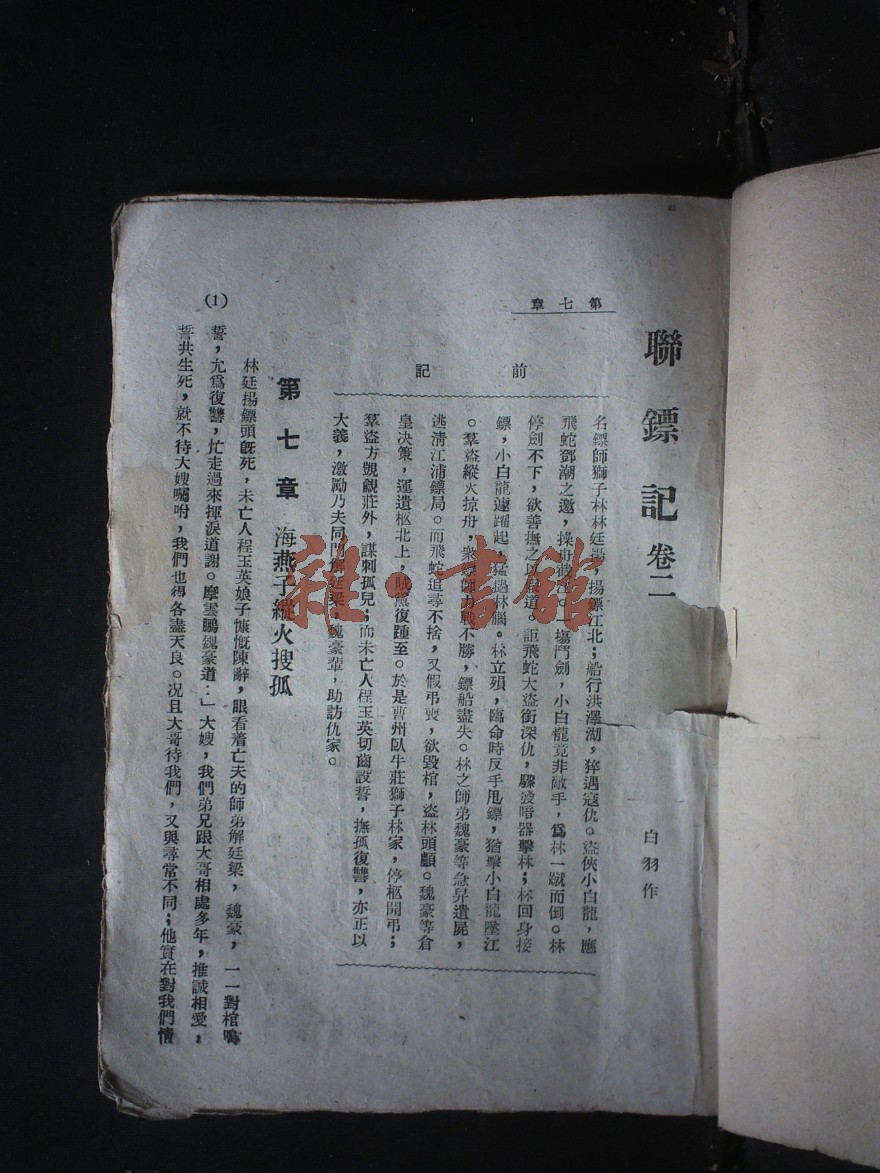 聯鏢記 卷二
白羽作
第七章
前記
名鏢師獅子林林廷揚，揚鏢江北；船行洪澤湖，猝遇寇仇。盜俠小白龍，應
飛蛇鄧潮之邀，操舟截江。一場鬥劍，小白龍竟非敵手，爲林一蹴而倒。林
停劍不下，欲善撫之以啟道。詎飛蛇大盜銜深仇，驟發暗器擊林；林回身接
鏢，小白龍遽躍起，猛搗林腦。林立殞，臨命時反手甩鏢，猶擊小白龍墜江
。羣盜縱火掠舟，衆鏢師力戰不勝，鏢船盡失。林之師弟魏豪等急舁遺屍，
逃淸江浦鏢局。而飛蛇追尋不捨，又假弔喪，欲毀棺，盜林頭顱。魏豪等倉
皇決策，運遺柩北上，賊黨復踵至。於是曹州臥牛莊獅子林家，停柩開弔；
羣盜方覬覦莊外，謀刺孤兒；而未亡人程玉英切齒設誓，撫孤復讐，亦正以
大義，激勵乃夫同門解廷梁，魏豪輩，助訪仇家。
第七章 海燕子縱火搜孤
林廷揚鏢頭旣死，未亡人程玉英娘子慷慨陳辭，眼看着亡夫的師弟解廷梁，魏豪，一一對棺鳴
誓，允爲復讐，忙走過來揮淚道謝。摩雲鵬魏豪道：」大嫂，我們弟兄跟大哥相處多年，推誠相愛，
誓共生死，就不待大嫂囑咐，我們也得各盡天良。况且大哥待我們，又與尋常不同；他實在對我們情
(1)
雜·書館